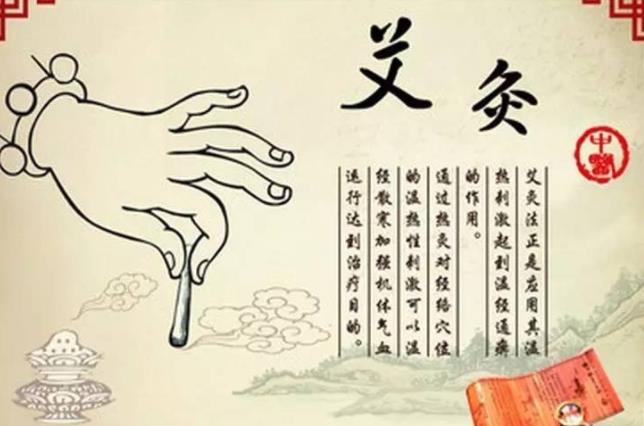 艾灸
中醫
艾灸法正是应用其温
热刺激起到温经通痹
的作用。
通过热灸对经络穴位
的温热性刺激可以温
经散寒加强机体气血
运行达到治疗目的。